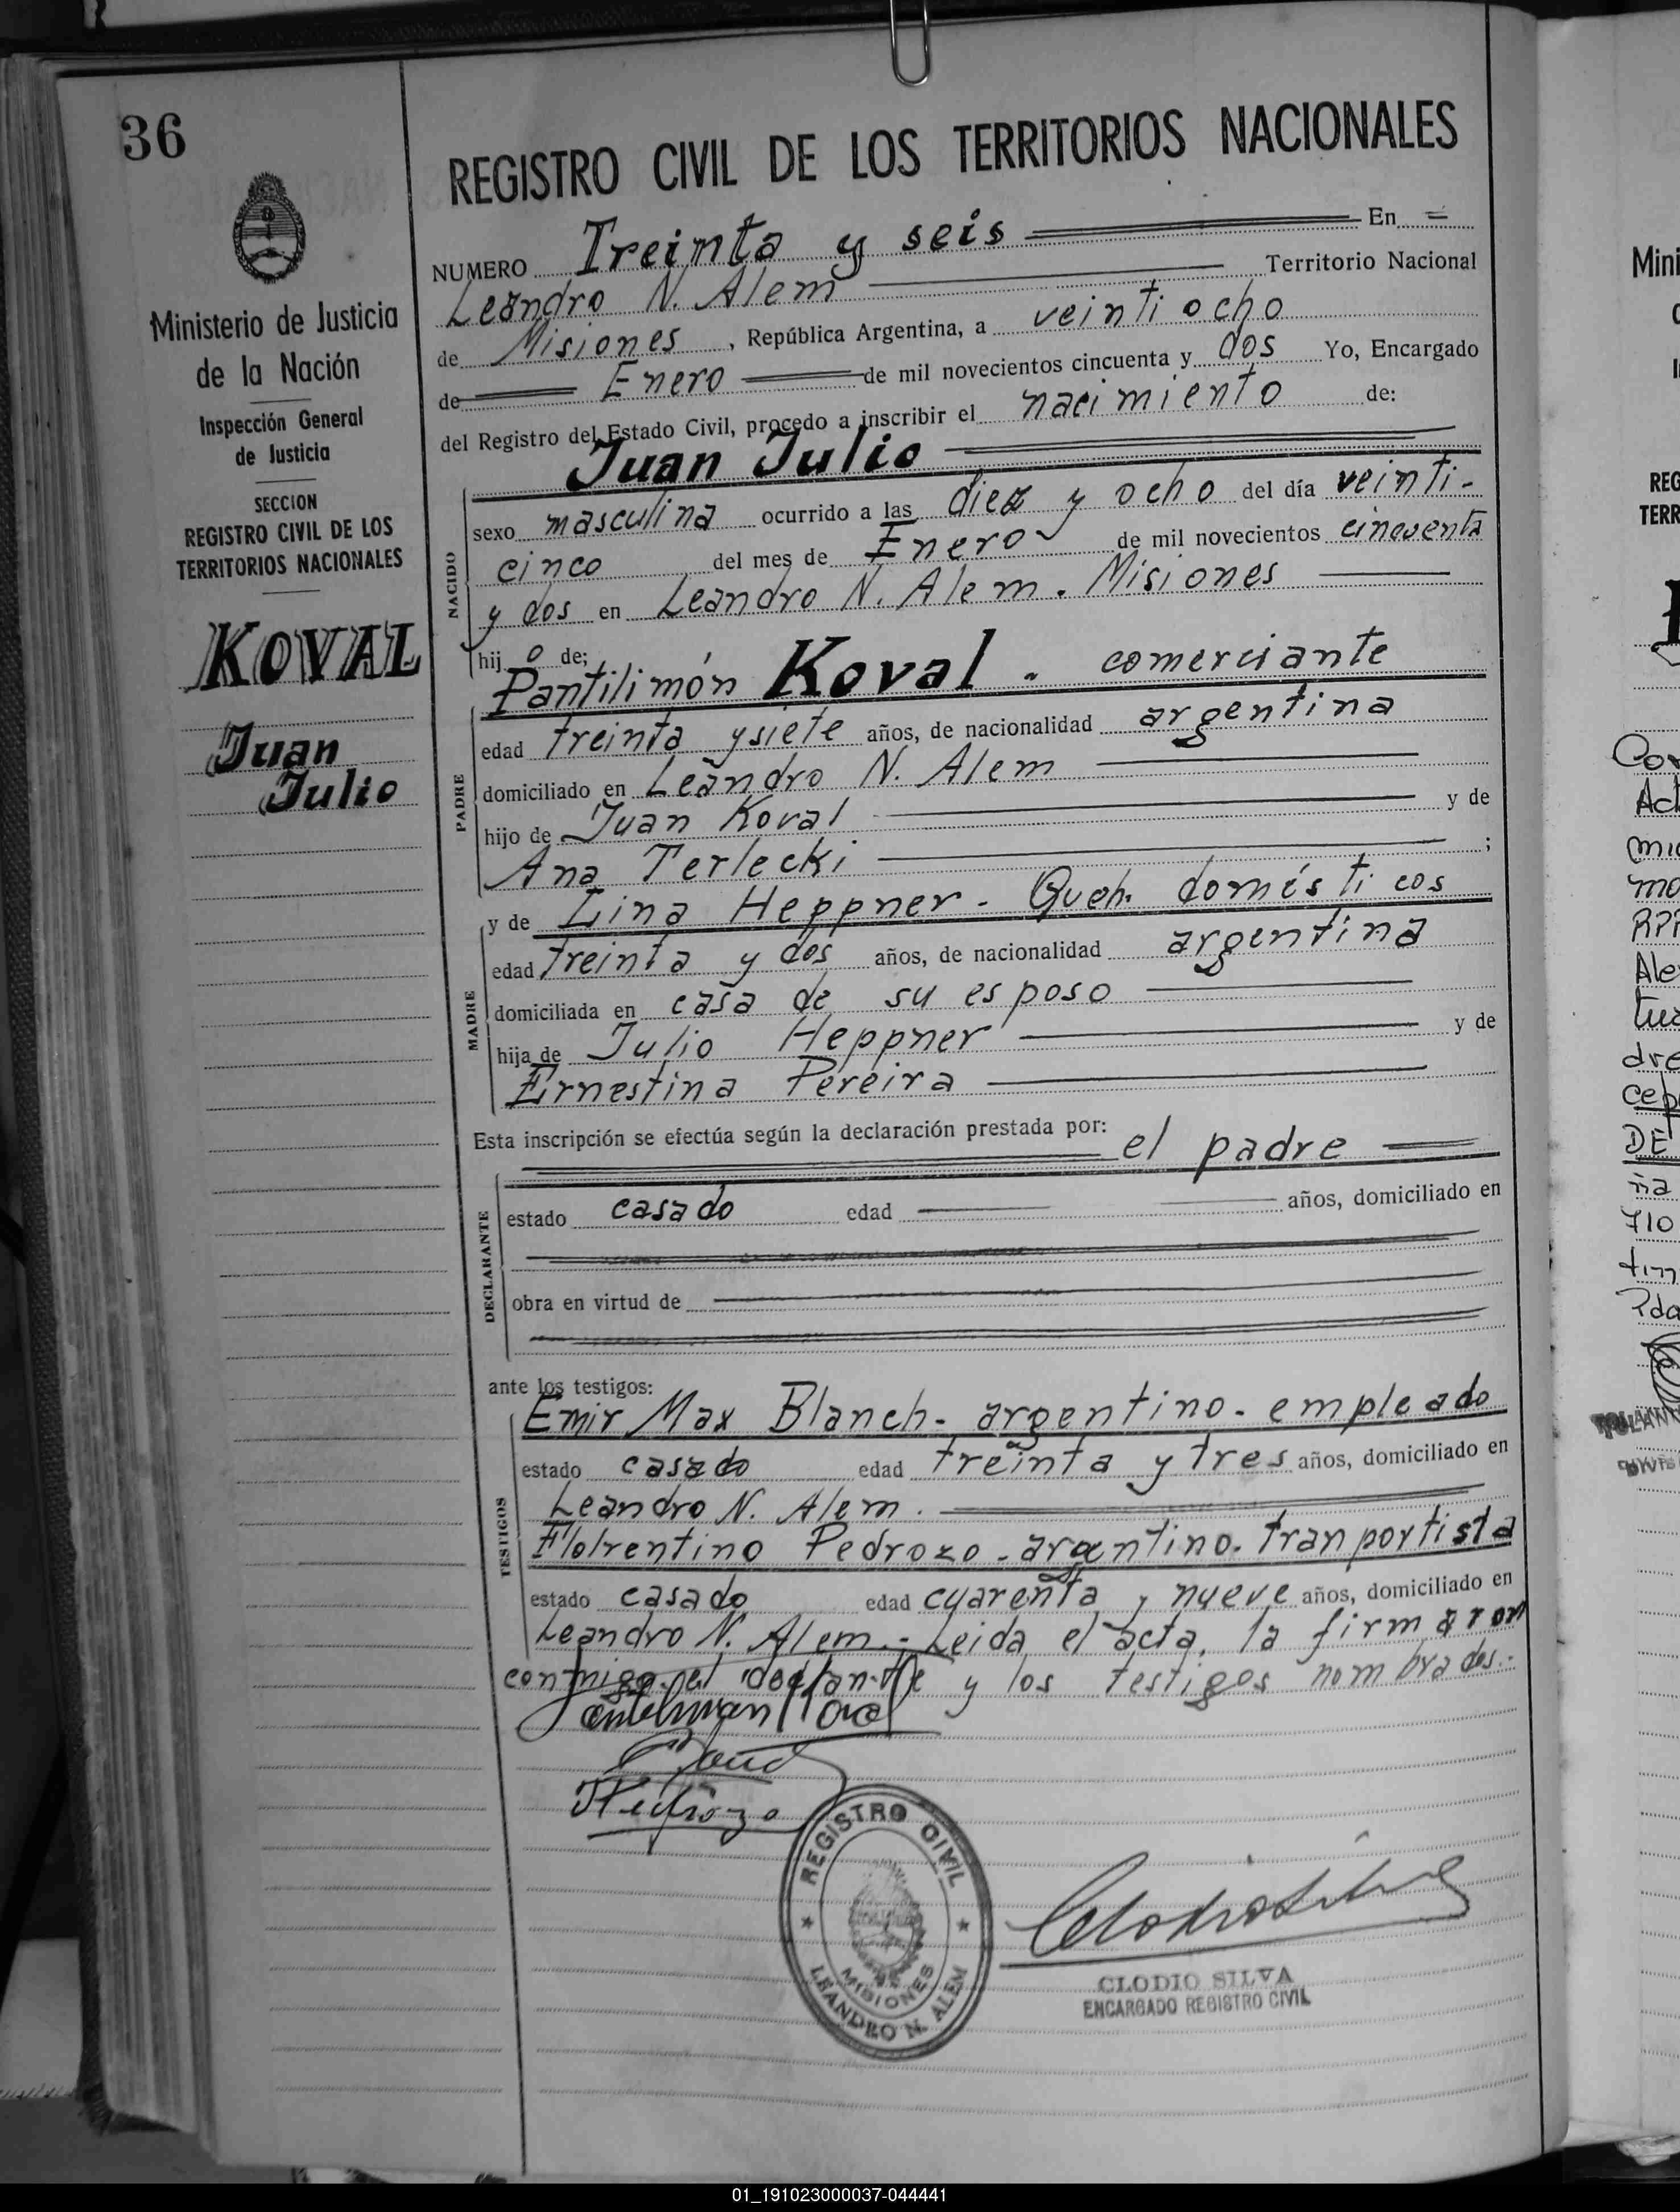 36
REGISTRO CIVIL DE LOS TERRITORIOS NACIONALES
Ministerio de Justicia
de la Nación
Inspección General
de Justicia
SECCION
REGISTRO CIVIL DE LOS
TERRITORIOS NACIONALES
KOVAL
Juan
Julio
NUMERO Treinta y seis En
Leandro N. Alem Territorio Nacional
de Misiones, República Argentina, a veintiocho
de Enero de mil novecientos cincuenta y dos Yo, Encargado
del Registro del Estado Civil, procedo a inscribir el nacimiento de:
Juan Julio
NACIDO
sexo masculina ocurrido a las diez y ocho del día veinti-
cinco del mes de Enero de mil novecientos cincuenta
y dos en Leandro N. Alem. Misiones
hijo de;
Pantilimón Koval - comerciante
PADRE
edad treinta y siete años, de nacionalidad argentina
domiciliado en Leandro N. Alem
hijo de Juan Koval y de
Ana Terlecki ;
y de Lina Heppner - Queh. domésticos
MADRE
edad treinta y dos años, de nacionalidad argentina
domiciliada en casa de su esposo
hija de Julio Heppner y de
Ernestina Pereira
Esta inscripción se efectúa según la declaración prestada por:
el padre
DECLARANTE
estado casado edad años, domiciliado en
obra en virtud de
ante los testigos:
Emir Max Blanch - argentino - empleado
TESTIGOS
estado casado edad treinta y tres años, domiciliado en
Leandro N. Alem.
Flolrentino Pedrozo - argentino. tranportista
estado casado edad cuarenta y nueve años, domiciliado en
Leandro N. Alem.- Leida el acta, la firmaron
conmigo el y los testigos nombrados.-
REGISTRO CIVIL
MISIONES
LEANDRO N. ALEM
CLODIO SILVA
ENCARGADO REGISTRO CIVIL
Mini
REG
TERR
01_191023000037-044441